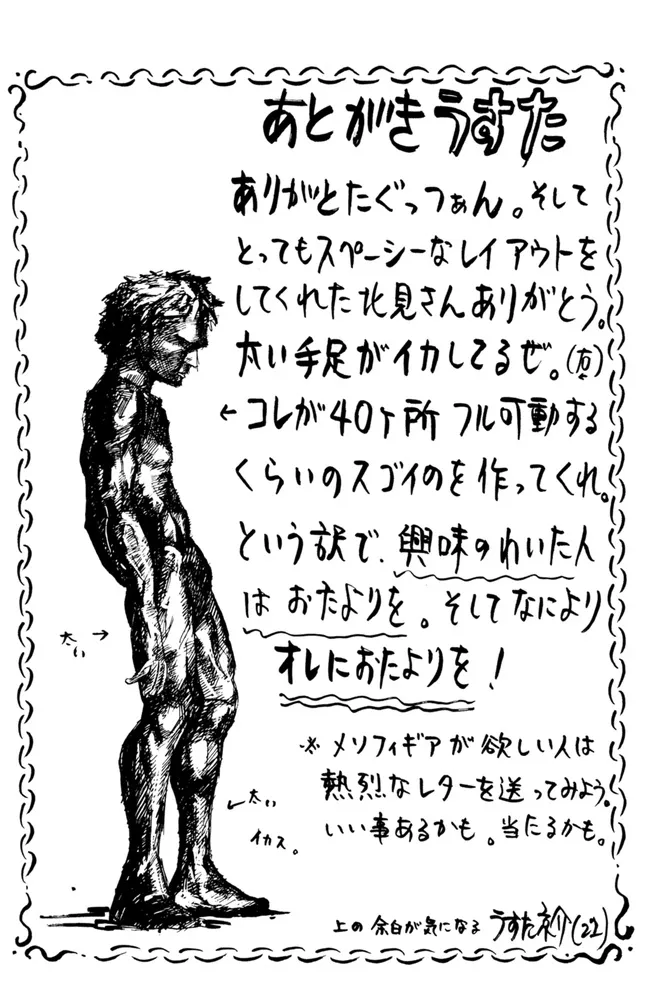 あとがきうすた
ありがとたぐっつぁん。そして
とってもスペーシーなレイアウトを
してくれた北見さんありがとう。
太い手足がイカしてるぜ。(右)
←コレが40ヶ所フル可動する
くらいのスゴイのを作ってくれ。
という訳で、興味のわいた人
はおたよりを。そしてなにより
オレにおたよりを!
※メソフィギアが欲しい人は
熱烈なレターを送ってみよう。
いい事あるかも。当たるかも。
太い→
←太い
イカス。
上の余白が気になるうすた京介(22)